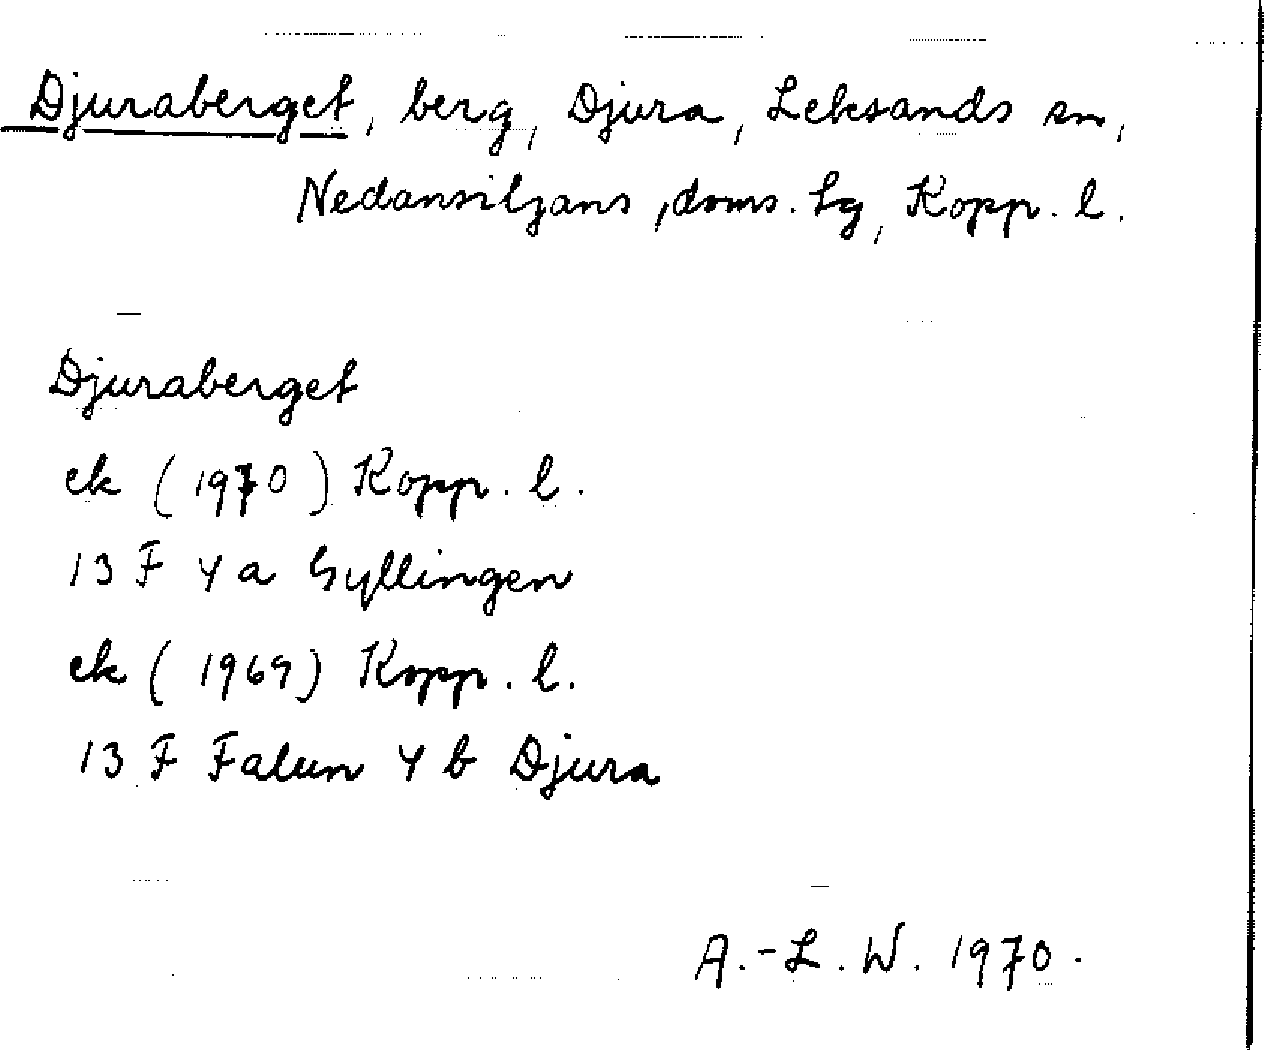 Djuraberget, berg, Djura, Leksands sn,
Nedansiljans, doms. hg, Kopp. l.
Djuraberget
ek (1970) Kopp. l.
13 F 4 a Gyllingen
ek (1969) Kopp. l.
13 F Falun 4 b Djura
A.-L. W. 1970.